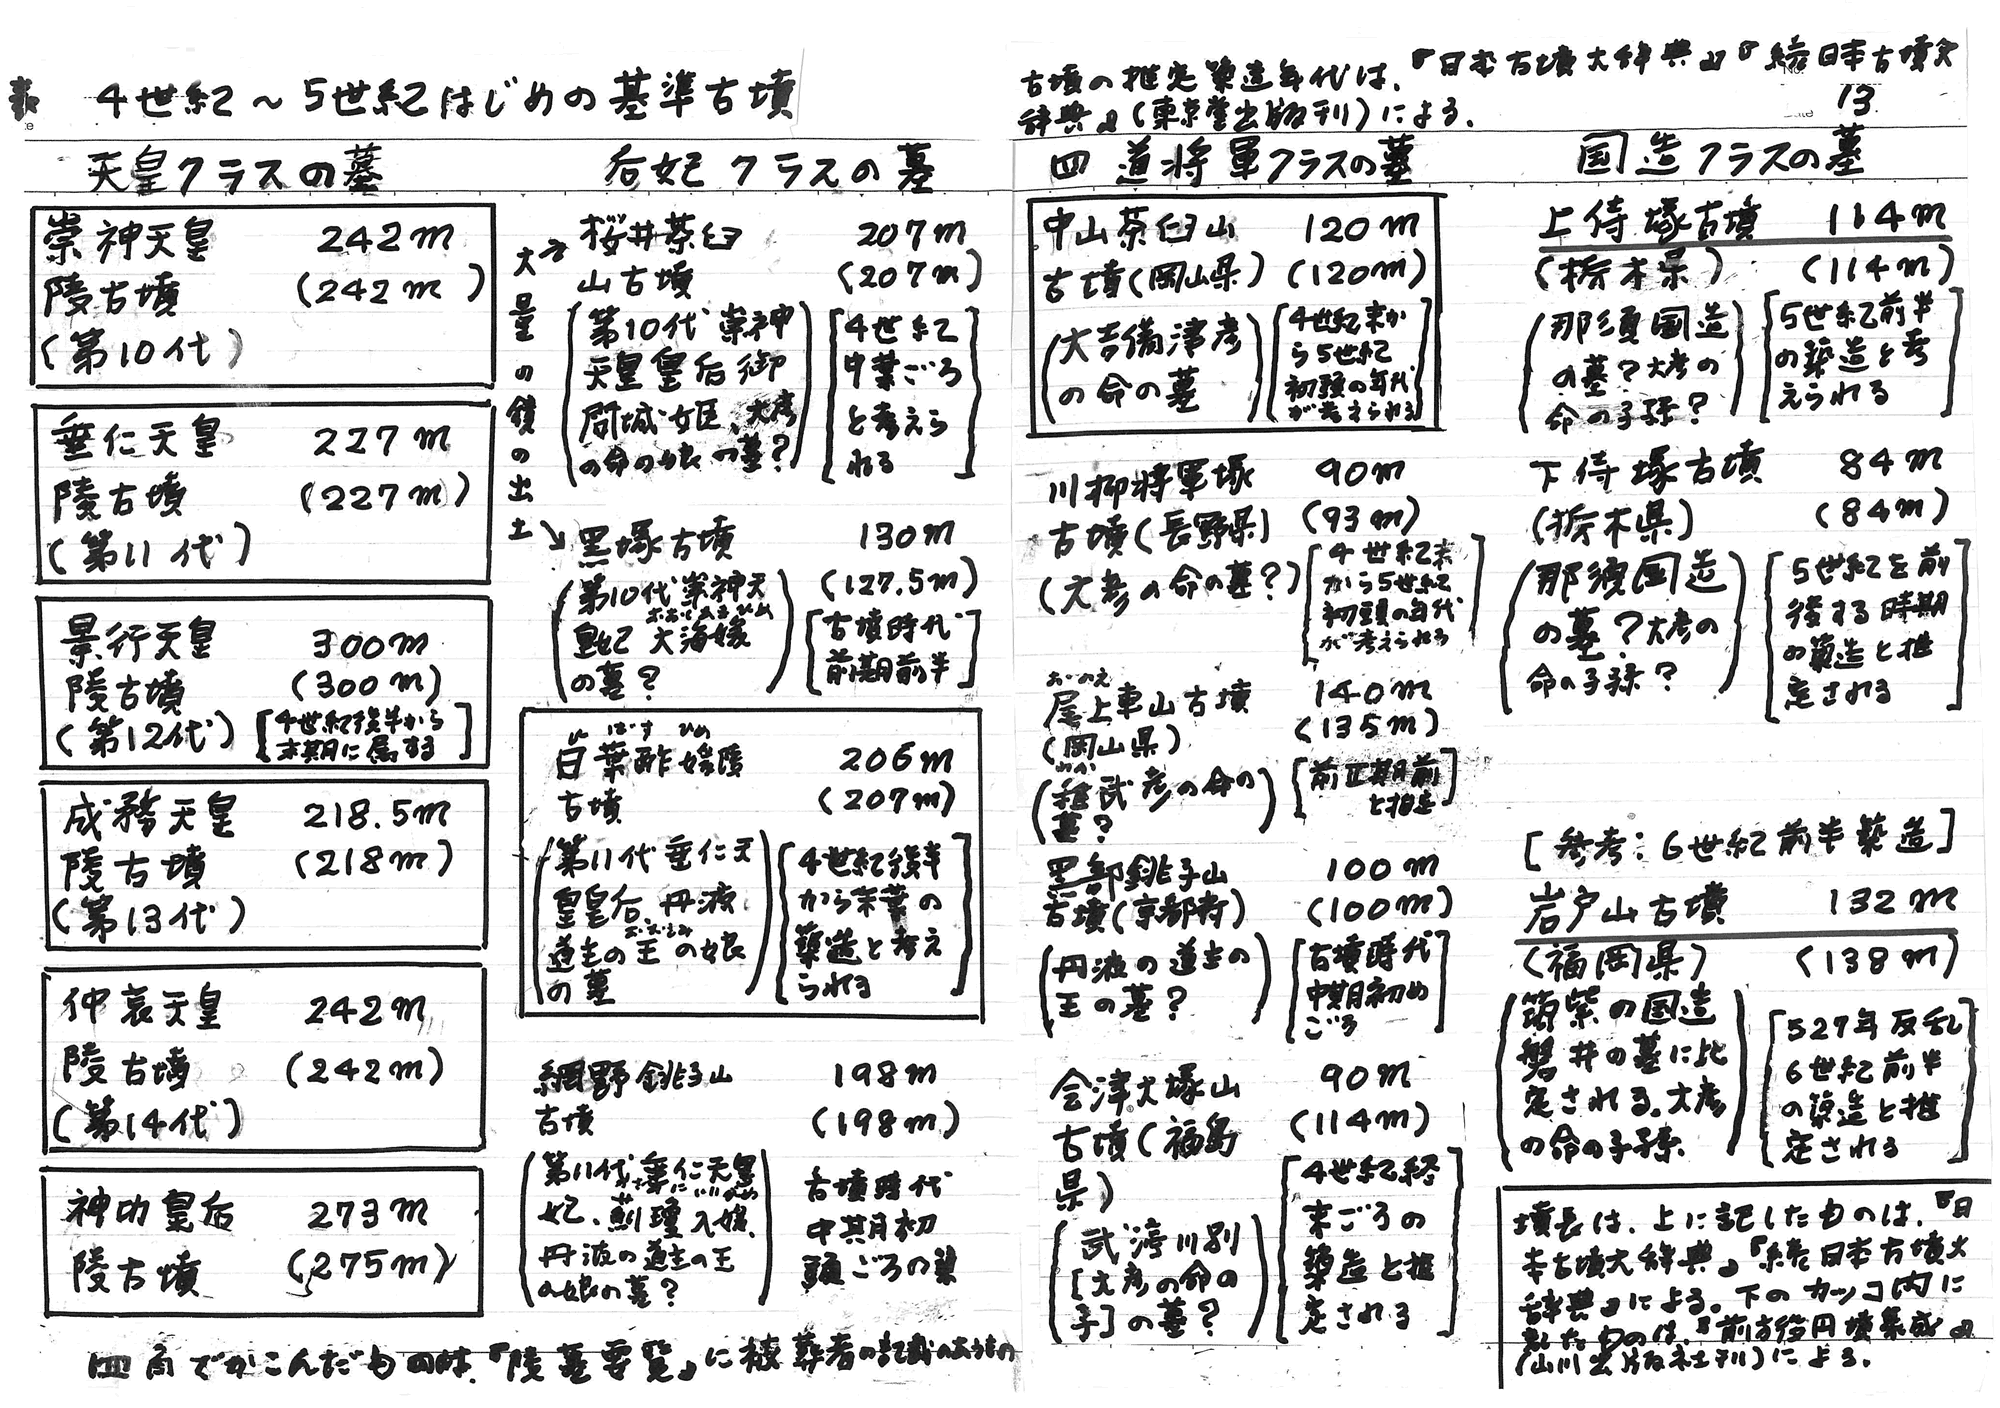 表 4世紀～5世紀はじめの基準古墳
古墳の推定築造年代は、『日本古墳大辞典』『続日本古墳大
辞典』(東京堂出版刊)による。
13
天皇クラスの墓
崇神天皇 242m
陵古墳 (242m)
(第10代)
垂仁天皇 227m
陵古墳 (227m)
(第11代)
景行天皇 300m
陵古墳 (300m)
(第12代) [4世紀後半から
末期に属する]
成務天皇 218.5m
陵古墳 (218m)
(第13代)
仲哀天皇 242m
陵古墳 (242m)
(第14代)
神功皇后 273m
陵古墳 (275m)
四角でかこんだものは、『陵墓要覧』に被葬者の記載のあるもの
后妃クラスの墓
大量の鏡の出土
桜井茶臼 207m
山古墳 (207m)
(第10代崇神
天皇皇后御
間城姫、大彦
の命の娘の墓?)
[4世紀
中葉ごろ
と考えら
れる]
黒塚古墳 130m
(127.5m)
(第10代崇神天
皇妃 大海媛
の墓?)
[古墳時代
前期前半]
ひ ばす ひめ
日葉酢媛陵 206m
古墳 (207m)
(第11代垂仁天
皇皇后、丹波
道主の王の娘
の墓)
[4世紀後半
から末葉の
築造と考え
られる]
網野銚子山 198m
古墳 (198m)
(第11代垂仁天皇
妃、薊瓊入媛、
丹波の道主の王
の娘の墓?)
古墳時代
中期初
頭ごろの築
四道将軍クラスの墓
中山茶臼山 120m
古墳(岡山県) (120m)
(大吉備津彦
の命の墓)
[4世紀末か
ら5世紀
初頭の年代
が考えられる]
川柳将軍塚 90m
古墳(長野県) (93m)
(大彦の命の墓?)
[4世紀末
から5世紀
初頭の年代
が考えられる]
おのえ
尾上車山古墳 140m
(岡山県) (135m)
(稚武彦の命の
墓?)
[前Ⅱ期前
と推定]
黒部銚子山 100m
古墳(京都府) (100m)
(丹波の道主の
王の墓?)
[古墳時代
中期初め
ごろ]
会津大塚山 90m
古墳(福島 (114m)
県)
(武渟川別
[大彦の命の
子]の墓?)
[4世紀終
末ごろの
築造と推
定される]
国造クラスの墓
上侍塚古墳 114m
(栃木県) (114m)
(那須国造
の墓?大彦の
命の子孫?)
[5世紀前半
の築造と考
えられる]
下侍塚古墳 84m
(栃木県) (84m)
(那須国造
の墓?大彦の
命の子孫?)
[5世紀を前
後する時期
の築造と推
定される]
[参考:6世紀前半築造]
岩戸山古墳 132m
(福岡県) (138m)
(筑紫の国造
磐井の墓に比
定される。大彦
の命の子孫)
[527年反乱
6世紀前半
の築造と推
定される]
墳長は、上に記したものは、『日
本古墳大辞典』『続日本古墳大
辞典』による。下のカッコ内に
記したものは、『前方後円墳集成』
(山川出版社刊)による。